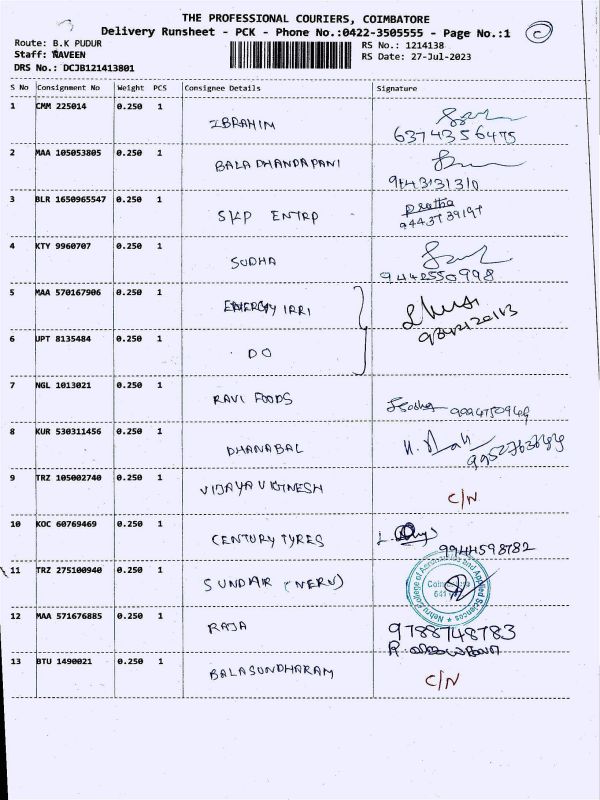 THE PROFESSIONAL COURIERS, COIMBATORE
Delivery Runsheet - PCK - Phone No.:0422-3505555 - Page No.:1
Route: B.K PUDUR
RS No.: 1214138
Staff: NAVEEN
RS Date: 27-Jul-2023
DRS No.: DCJB121413801
S No Consignment No Weight PCS Consignee Details Signature
1 CMM 225014 0.250 1 IBRAHIM
6374356475
2 MAA 105053805 0.250 1 BALA DHANDAPANI
9143131310
3 BLR 1650965547 0.250 1 SKP ENTRP
4 KTY 9960707 0.250 1 SUDHA
9442550998
5 MAA 570167906 0.250 1 ENERGY IRRI
6 UPT 8135484 0.250 1 DO
7 NGL 1013021 0.250 1 RAVI FOODS
8 KUR 530311456 0.250 1 DHANABAL
9 TRZ 105002740 0.250 1 VIJAYA VIGNESH C/N
10 KOC 60769469 0.250 1 CENTURY TYRES
9944598782
11 TRZ 275100940 0.250 1 SUNDAR (NERU)
Nehru College of Aeronautics and Applied Sciences
12 MAA 571676885 0.250 1 RAJA
9788748783
13 BTU 1490021 0.250 1 BALASUNDHARAM C/N